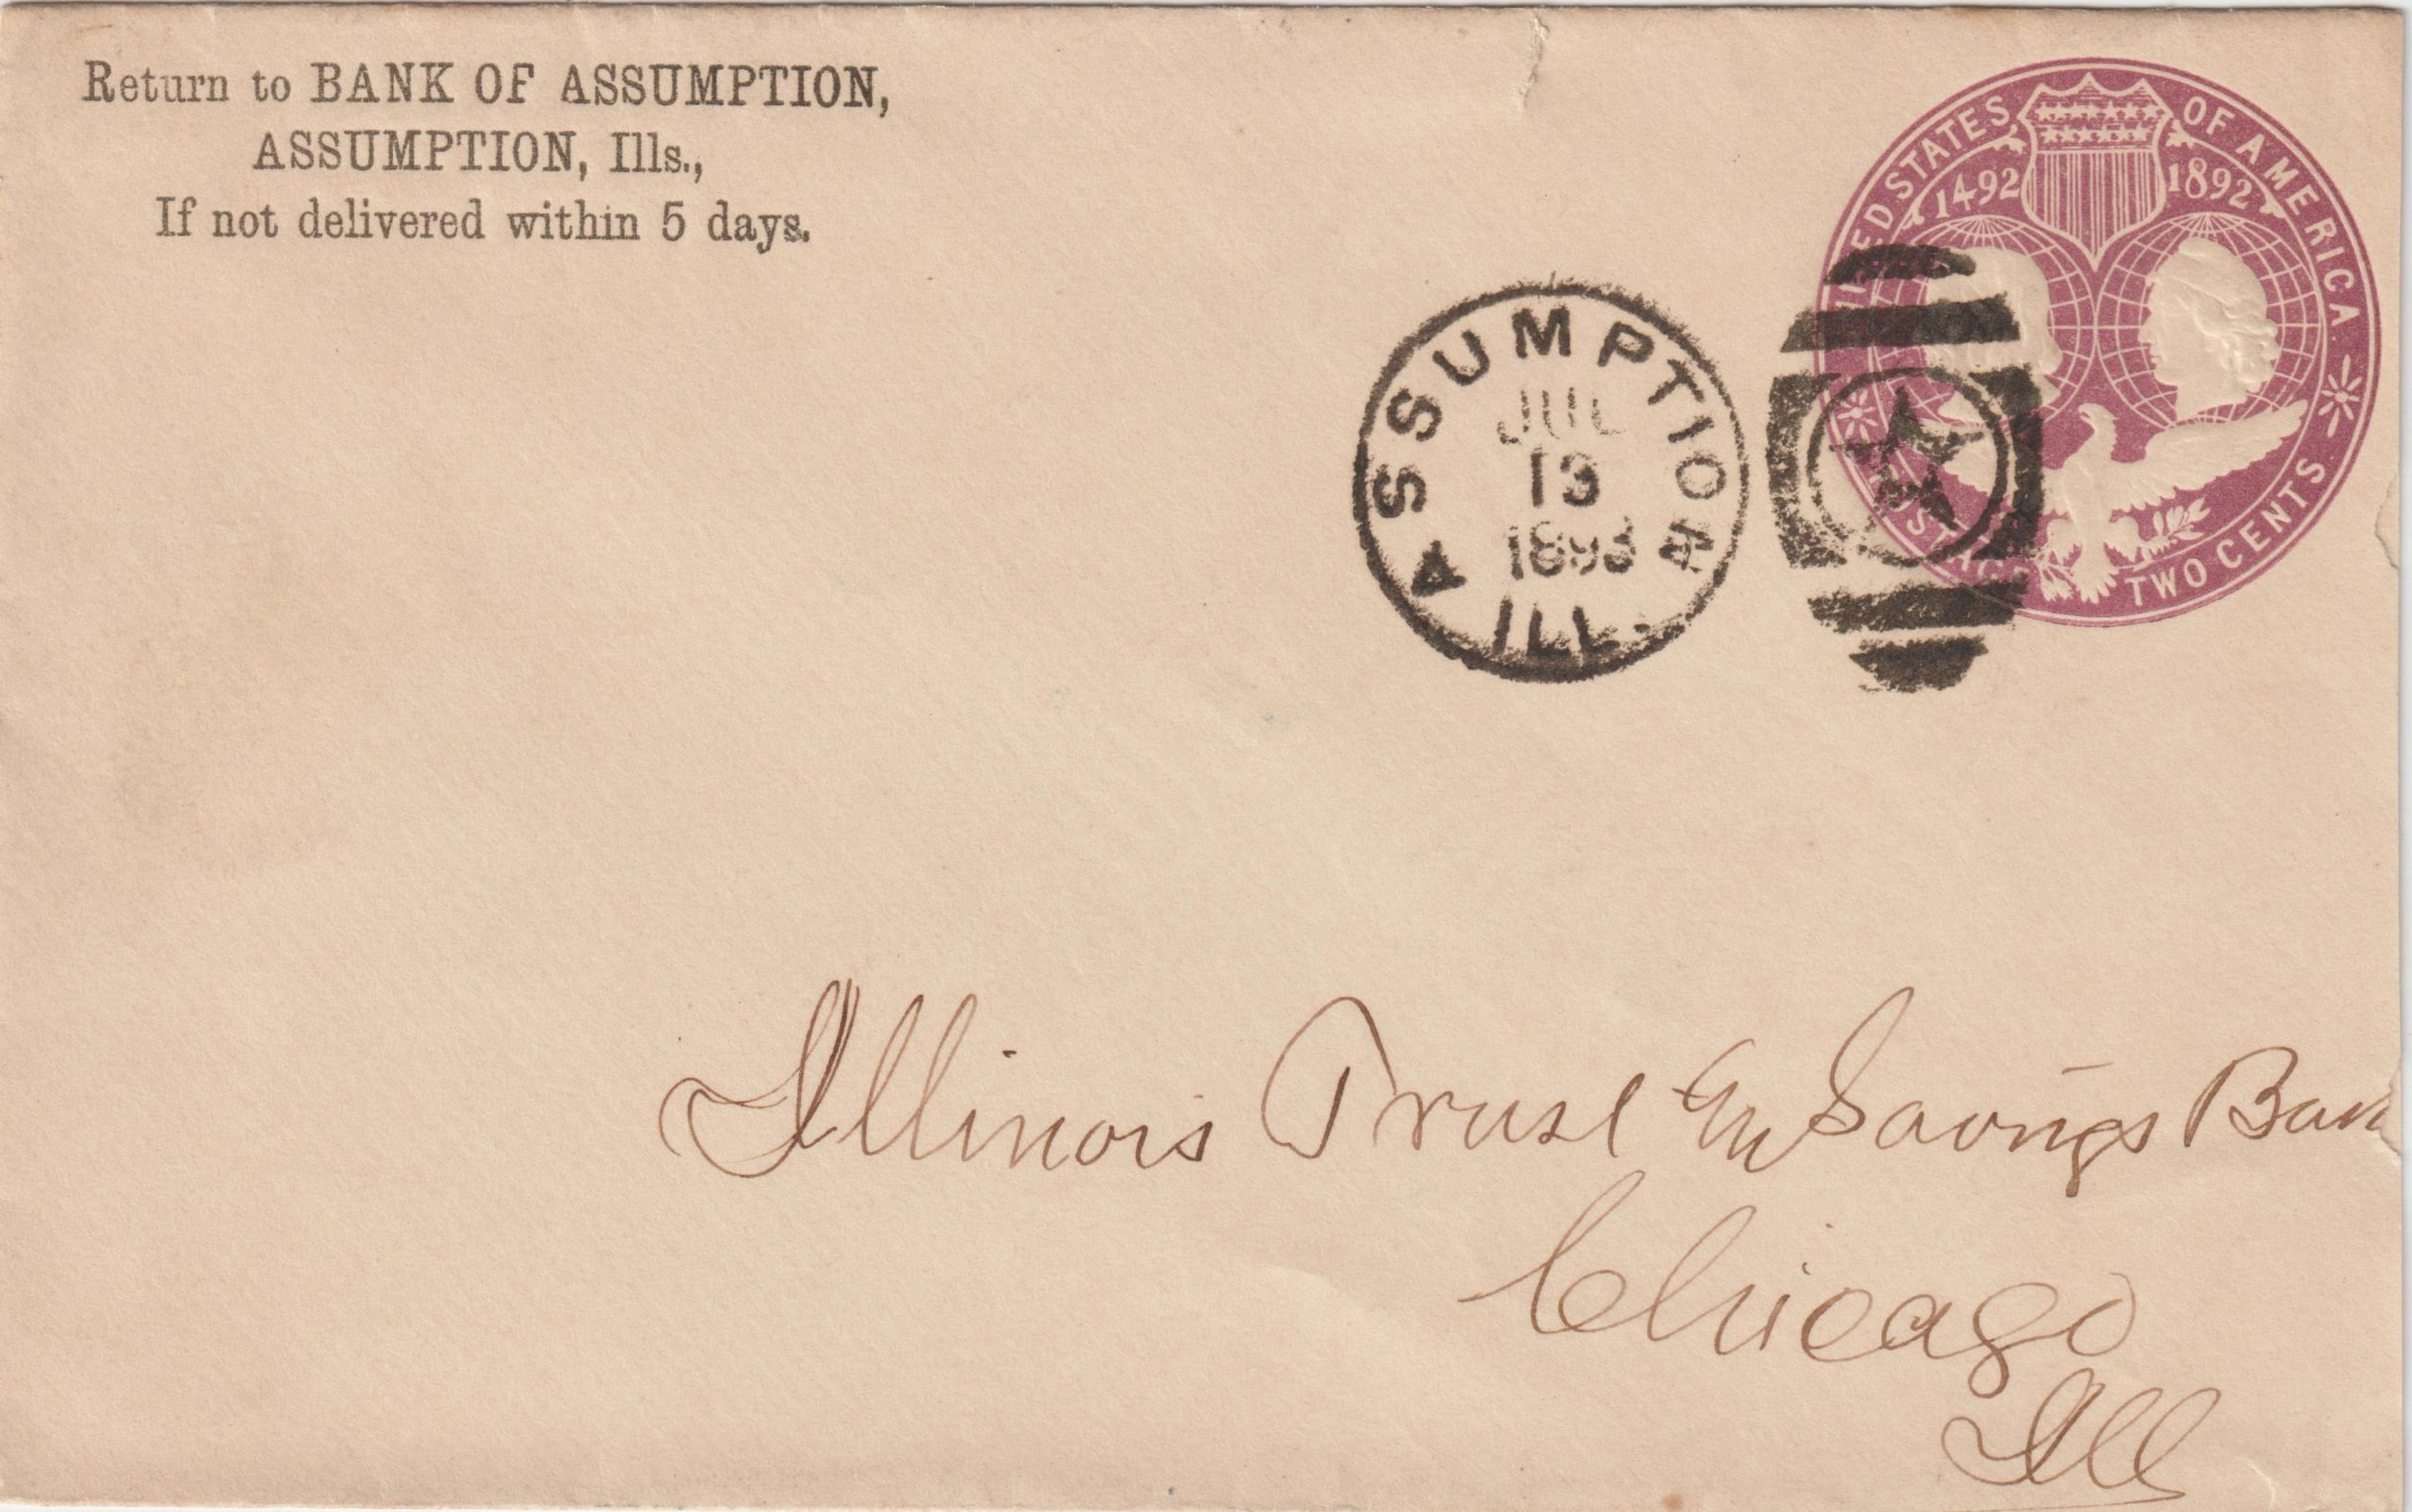 Return to BANK OF ASSUMPTION,
ASSUMPTION, Ills.,
If not delivered within 5 days.
UNITED STATES OF AMERICA
1492 1892
POSTAGE TWO CENTS
ASSUMPTION
JUL
13
1893
ILL.
Illinois Trust & Savings Bank
Chicago
Ill